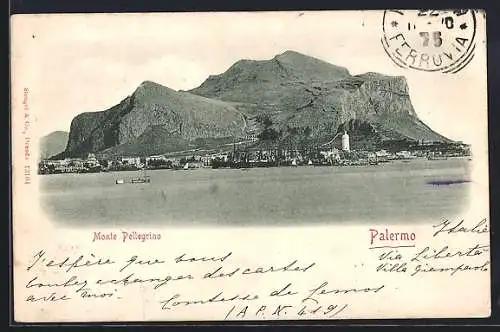 22
75
FERROVIA
Stengel & Co., Dresde 12164
Monte Pellegrino
Palermo
Italie
Via Libertà
Villa Giampaolo
J'espère que vous
voulez échanger des cartes
avec moi.
Comtesse de
(A.P.N. 419)